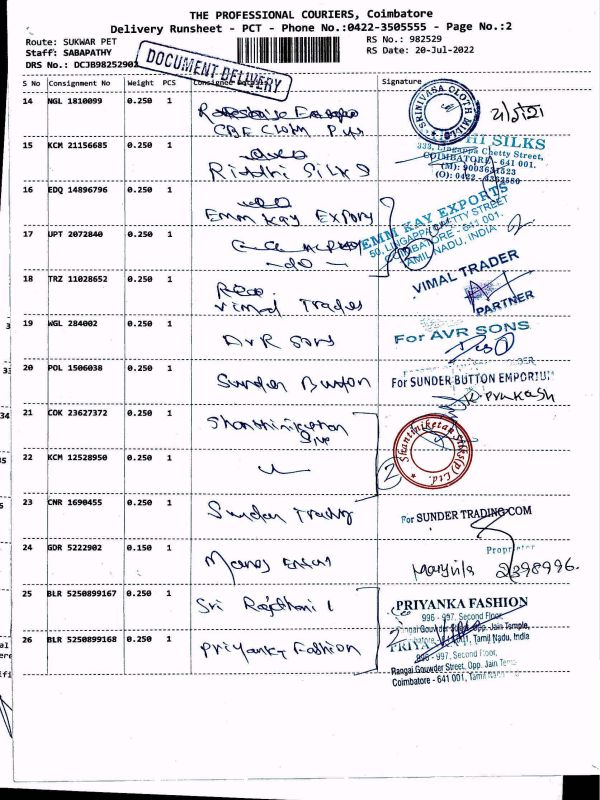 THE PROFESSIONAL COURIERS, Coimbatore
Delivery Runsheet - PCT - Phone No.:0422-3505555 - Page No.:2
Route: SUKWAR PET
RS No.: 982529
Staff: SABAPATHY
RS Date: 20-Jul-2022
DRS No.: DCJB98252902
DOCUMENT DELIVERY
S No Consignment No Weight PCS Consignee Signature
14 NGL 1810099 0.250 1
CBE Cloth
SRINIVASA CLOTH MILLS
15 KCM 21156685 0.250 1
Riddhi Silks
HI SILKS
333, Lingappa Chetty Street,
COIMBATORE - 641 001.
(M): 9003631523
(O): 0422 -
16 EDQ 14896796 0.250 1
Emm Kay Export
EMM KAY EXPORTS
50, LINGAPPA CHETTY STREET
COIMBATORE - 641 001.
TAMIL NADU, INDIA
17 UPT 2072840 0.250 1
- do -
18 TRZ 11028652 0.250 1
Vimal Trades
VIMAL TRADER
PARTNER
19 WGL 284002 0.250 1
AVR Sons
For AVR SONS
20 POL 1506038 0.250 1
Sunder Button
For SUNDER BUTTON EMPORIUM
Prakash
21 COK 23627372 0.250 1
Shanthiniketan
Shanthiniketan Silks(p) Ltd.
22 KCM 12528950 0.250 1
2
23 CNR 1690455 0.250 1
Sunder Trading
For SUNDER TRADING COM
24 GDR 5222902 0.150 1
Manoj
Proprietor
98996.
25 BLR 5250899167 0.250 1
Sri Rajdhani
PRIYANKA FASHION
996 - 997, Second Floor,
Rangai Gouwder Street, Opp. Jain Temple,
Coimbatore - 641 001, Tamil Nadu, India
26 BLR 5250899168 0.250 1
Priyanka Fashion
996 - 997, Second Floor,
Rangai Gouwder Street, Opp. Jain
Coimbatore - 641 001, Tamil